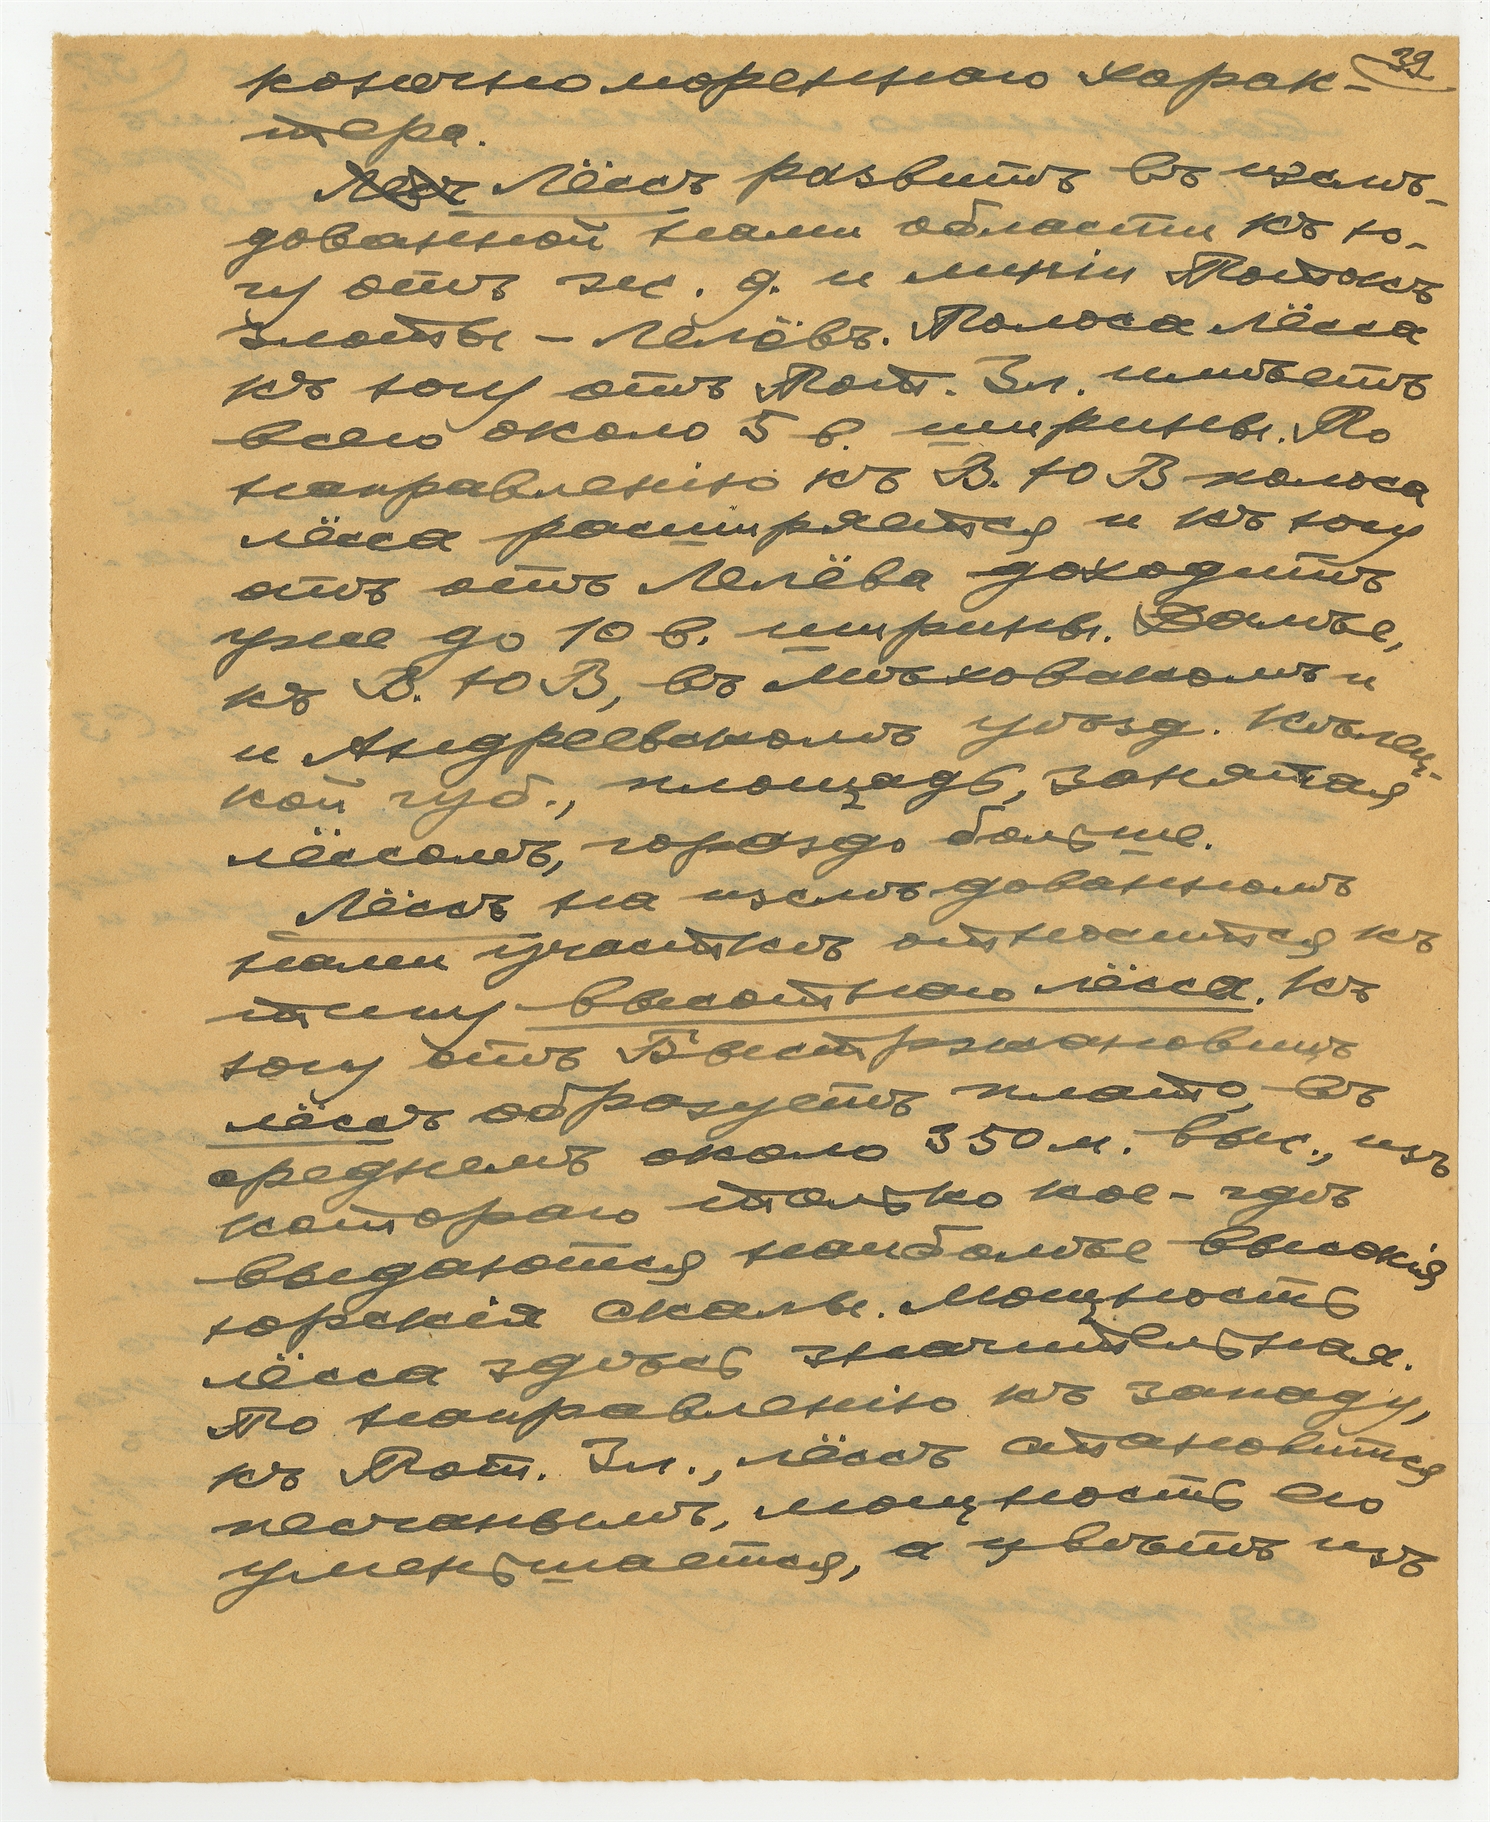 39
конечно моренного харак-
тера.
Лёссъ развитъ въ изслѣ-
дованной нами области къ ю-
гу отъ жел. д. и линіи Потокъ
Злотый – Лелёвъ. Полоса лёсса
къ югу отъ Пот. Зл. имѣетъ
всего около 5 в. ширины. По
направленію къ В.ЮВ полоса
лёсса расширяется и къ югу
отъ отъ Лелёва доходитъ
уже до 10 в. ширины. Далѣе,
къ В.ЮВ, въ Мѣховскомъ и
и Андреевскомъ уѣзд. Кѣлец-
кой губ., площадь, занятая
лёссомъ, гораздо больше.
Лёссъ на изслѣдованномъ
нами участкѣ относится къ
типу высотного лёсса. Къ
югу отъ Быстржановицъ
лёссъ образуетъ плато, въ
среднемъ около 350 м. выс., изъ
котораго только кое-гдѣ
выдаются наиболѣе высокія
юрскія скалы. Мощность
лёсса здѣсь значительная.
По направленію къ западу,
къ Пот. Зл., лёссъ становится
песчанымъ, мощность его
уменьшается, а цвѣтъ изъ